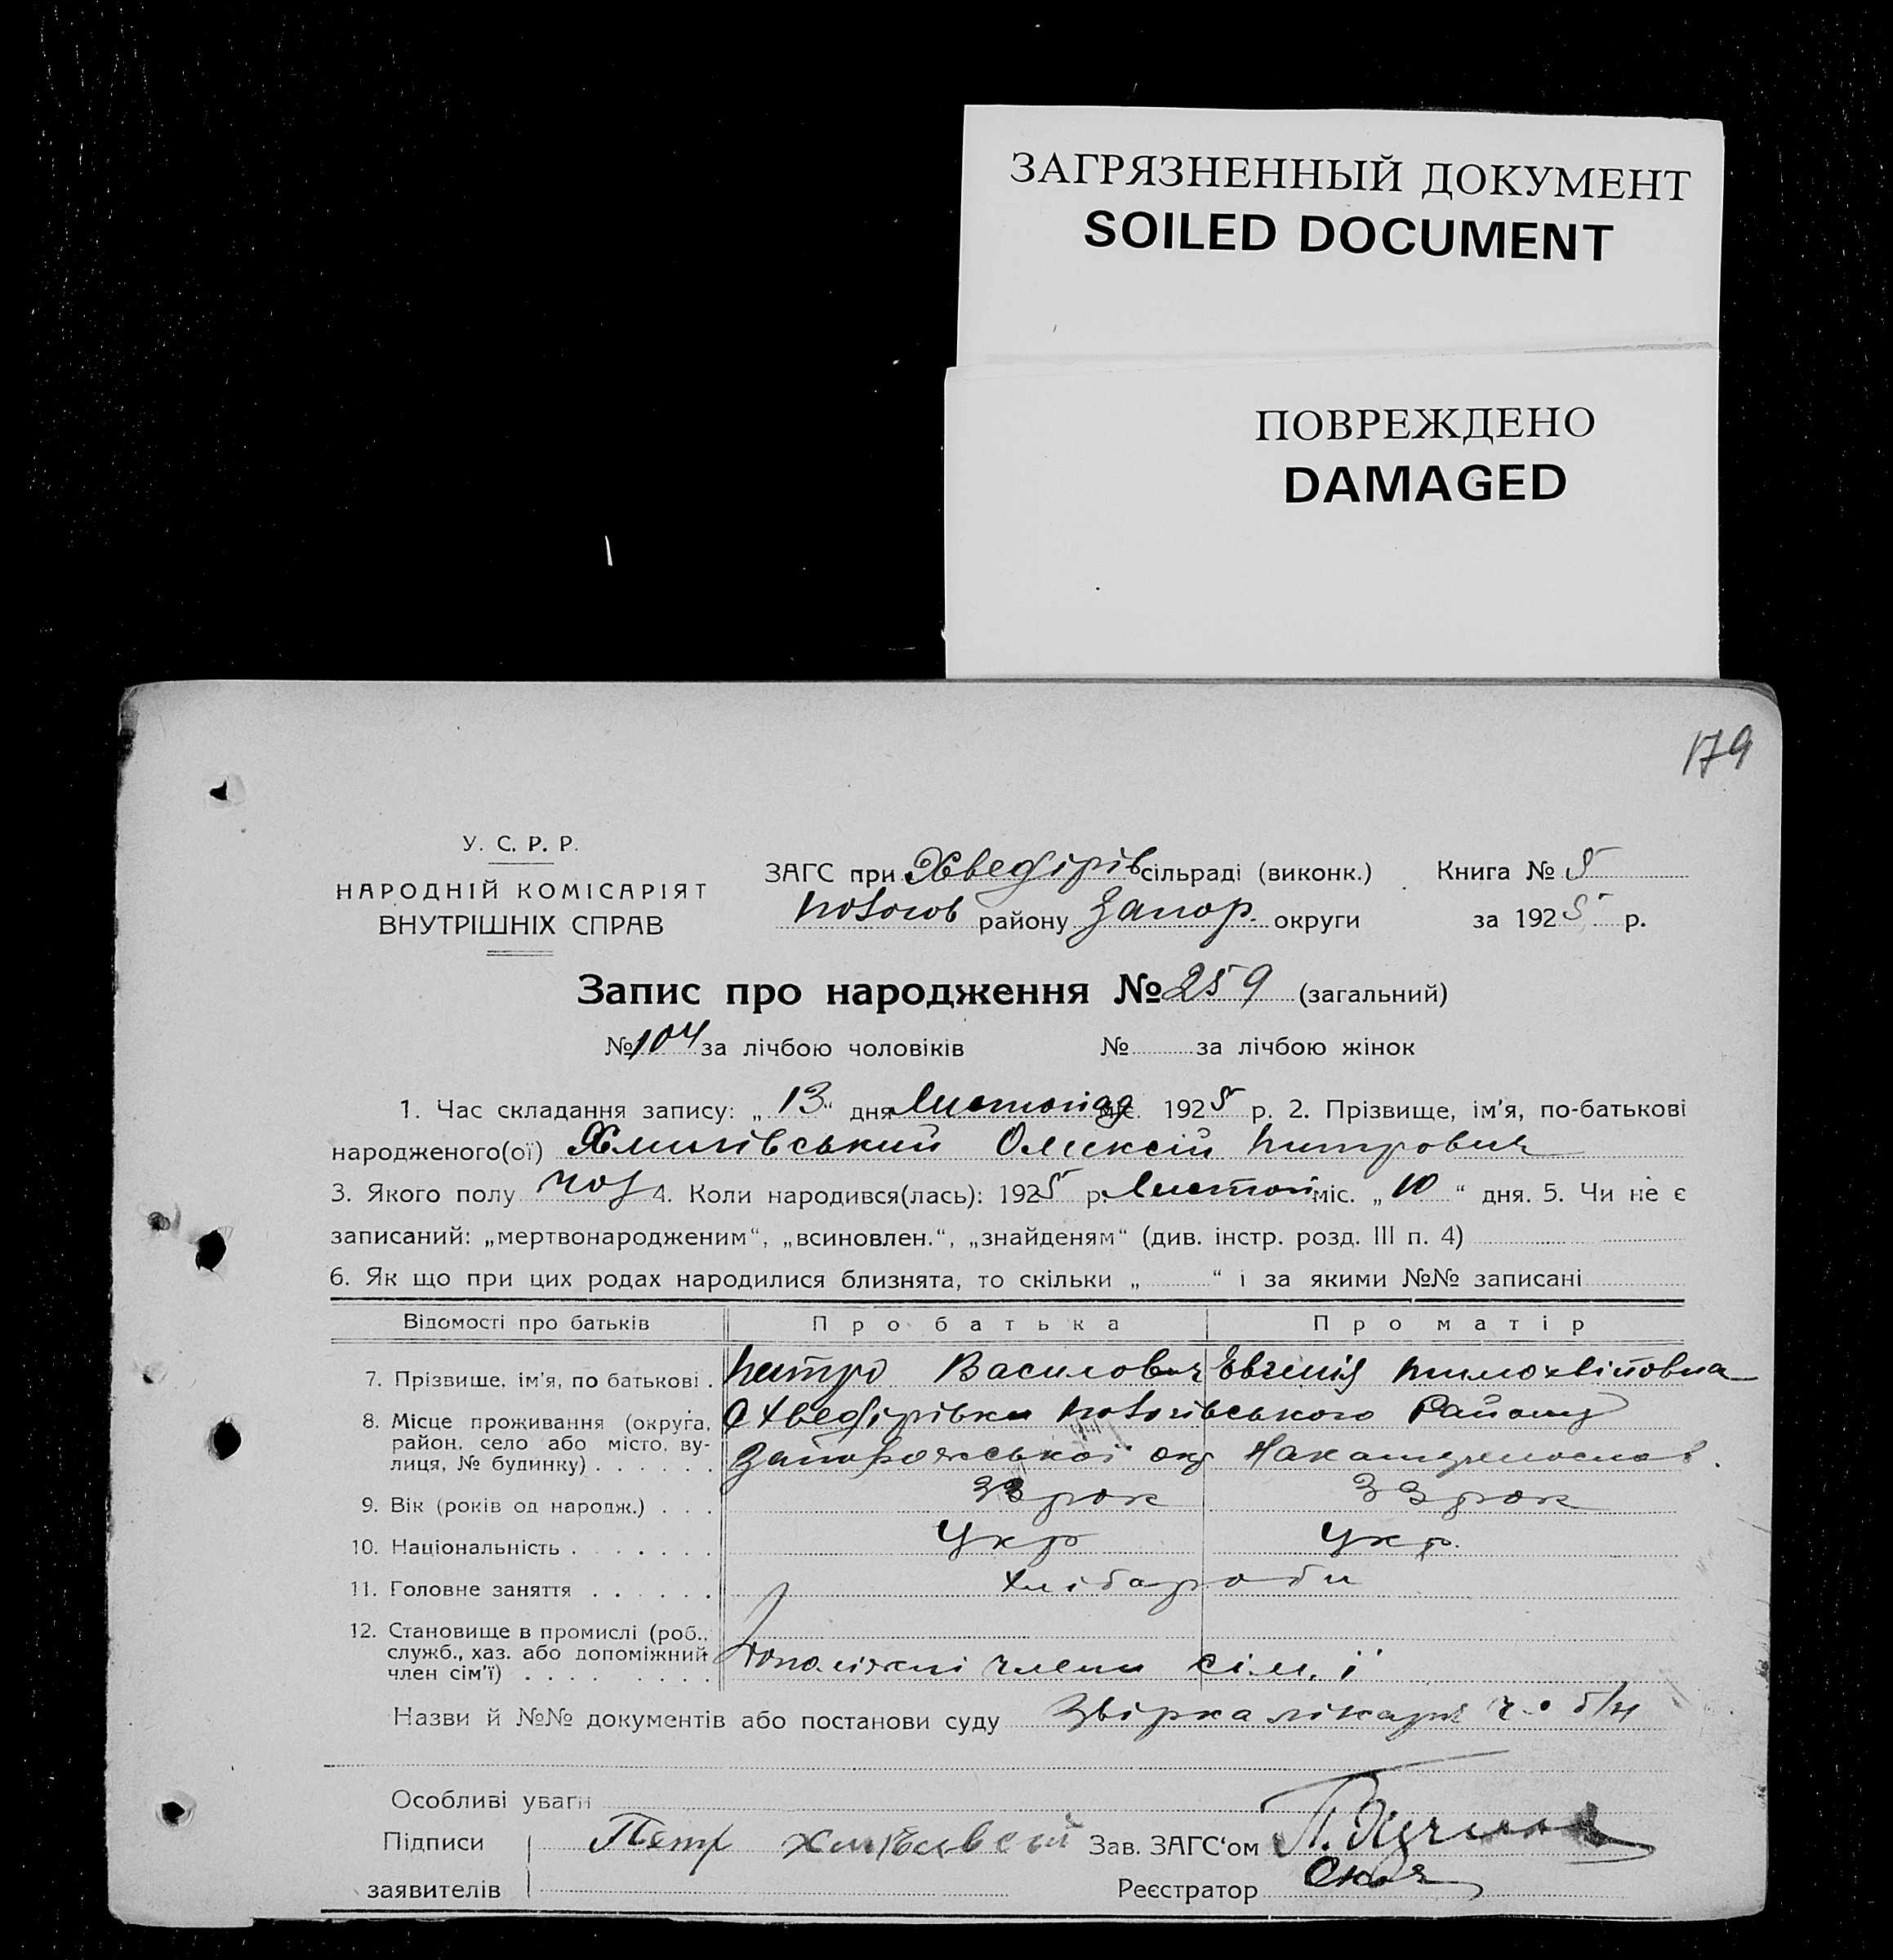 ЗАГРЯЗНЕННЫЙ ДОКУМЕНТ
SOILED DOCUMENT
ПОВРЕЖДЕНО
DAMAGED
179
У. С. Р. Р.
НАРОДНІЙ КОМІСАРІЯТ
ВНУТРІШНІХ СПРАВ
ЗАГС при Хведірів сільраді (виконк.) Книга № 5
Пологов району Запор. округи за 1925 р.
Запис про народження № 259 (загальний)
№ 104 за лічбою чоловіків № за лічбою жінок
1. Час складання запису: „ 13 “ дня Листопад міс. 1925 р. 2. Прізвище, ім'я, по-батькові
народженого(ої) Олексій Питрович
3. Якого полу чол 4. Коли народився(лась): 1925 р. Листоп міс. „ 10 “ дня. 5. Чи не є
записаний: „мертвонародженим“, „всиновлен.“, „знайденям“ (див. інстр. розд. III п. 4)
6. Як що при цих родах народилися близнята, то скільки „ “ і за якими №№ записані
Відомості про батьків Про батька Про матір
7. Прізвище, ім'я, по батькові . Петро Василович Евгенія
8. Місце проживання (округа, район, село або місто, вулиця, № будинку) . . . . . . С Хведірівки Пологівського Району
Запорожської окр
9. Вік (років од народж.) . . . 33 рок 33 рок
10. Національність . . . . . . . Укр Укр.
11. Головне заняття . . . . . . хлібароби
12. Становище в промислі (роб., служб., хаз. або допоміжний член сім'ї) . . . . . . . . . Допоміжні члени сім.ї
Назви й №№ документів або постанови суду лікаря ч. б/н
Особливі уваги
Підписи Петр Зав. ЗАГС‘ом
заявителів Реєстратор